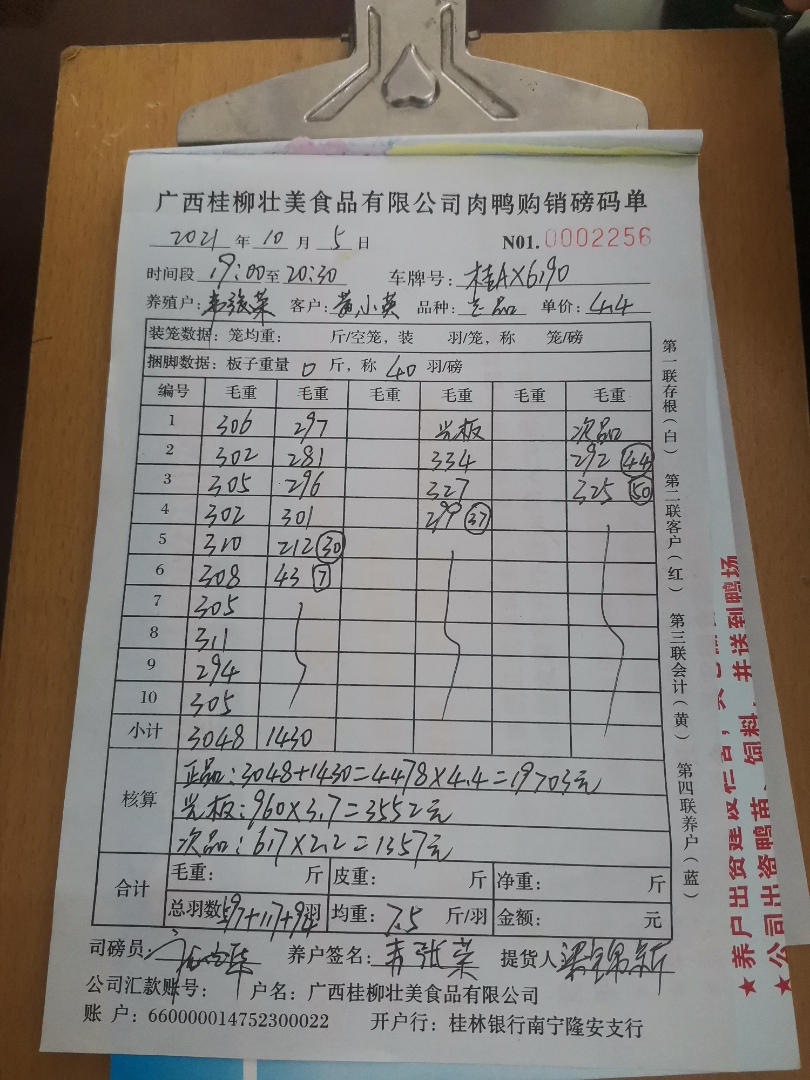 广西桂柳壮美食品有限公司肉鸭购销磅码单
2021 年 10 月 5 日 N01.0002256
时间段 19:00至20:30 车牌号: 桂AX6190
养殖户: 韦张荣 客户: 黄小英 品种: 品 单价: 4.4
装笼数据: 笼均重: 斤/空笼, 装 羽/笼, 称 笼/磅
捆脚数据: 板子重量 0 斤, 称 40 羽/磅
编号 毛重 毛重 毛重 毛重 毛重 毛重
1 306 297 板 次品
2 302 281 334 292 44
3 305 296 327 325 50
4 302 301 299 37
5 310 212 30
6 308 43 7
7 305
8 311
9 294
10 305
小计 3048 1430
核算 正品:3048+1430=4478×4.4=19703元
板:960×3.7=3552元
次品:617×2.2=1357元
合计 毛重: 斤 皮重: 斤 净重: 斤
总羽数 597+117+94羽 均重: 7.5 斤/羽 金额: 元
司磅员: 养户签名: 韦张荣 提货人
公司汇款账号: 户名: 广西桂柳壮美食品有限公司
账 户: 660000014752300022 开户行: 桂林银行南宁隆安支行
第一联存根(白) 第二联客户(红) 第三联会计(黄) 第四联养户(蓝)
★养户出资建设栏舍,
★公司出资鸭苗、饲料,并送到鸭场